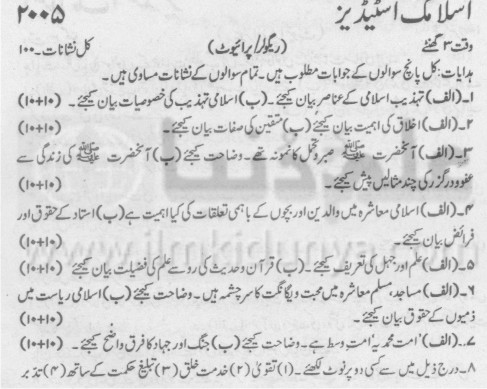 اسلامک اسٹیڈیز ۲۰۰۵
وقت ۳ گھنٹے (ریگولر/پرائیوٹ) کل نشانات۔۱۰۰
ہدایات: کل پانچ سوالوں کے جوابات مطلوب ہیں۔ تمام سوالوں کے نشانات مساوی ہیں۔
۱۔ (الف) تہذیب اسلامی کے عناصر بیان کیجئے۔ (ب) اسلامی تہذیب کی خصوصیات بیان کیجئے۔ (۱۰+۱۰)
۲۔ (الف) اخلاق کی اہمیت بیان کیجئے (ب) متقین کی صفات بیان کیجئے۔ (۱۰+۱۰)
۳۔ (الف) آنحضرت ﷺ صبر و تحمل کا نمونہ تھے۔ وضاحت کیجئے (ب) آنحضرت ﷺ کی زندگی سے
عفو و درگزر کی چند مثالیں پیش کیجئے۔ (۱۰+۱۰)
۴۔ (الف) اسلامی معاشرہ میں والدین اور بچوں کے باہمی تعلقات کی کیا اہمیت ہے (ب) استاد کے حقوق اور
فرائض بیان کیجئے۔ (۱۰+۱۰)
۵۔ (الف) علم اور جہل کی تعریف کیجئے۔ (ب) قرآن و حدیث کی رو سے علم کی فضیلت بیان کیجئے۔ (۱۰+۱۰)
۶۔ (الف) مساجد، مسلم معاشرہ میں محبت و یگانگت کا سرچشمہ ہیں۔ وضاحت کیجئے (ب) اسلامی ریاست میں
ذمیوں کے حقوق بیان کیجئے۔ (۱۰+۱۰)
۷۔ (الف) امت محمدیہ امت وسط ہے۔ وضاحت کیجئے (ب) جنگ اور جہاد کا فرق واضح کیجئے۔ (۱۰+۱۰)
۸۔ درج ذیل میں سے کسی دو پر نوٹ لکھئے۔ (۱) تقویٰ (۲) خدمت خلق (۳) تبلیغ حکمت کے ساتھ (۴) تدبر